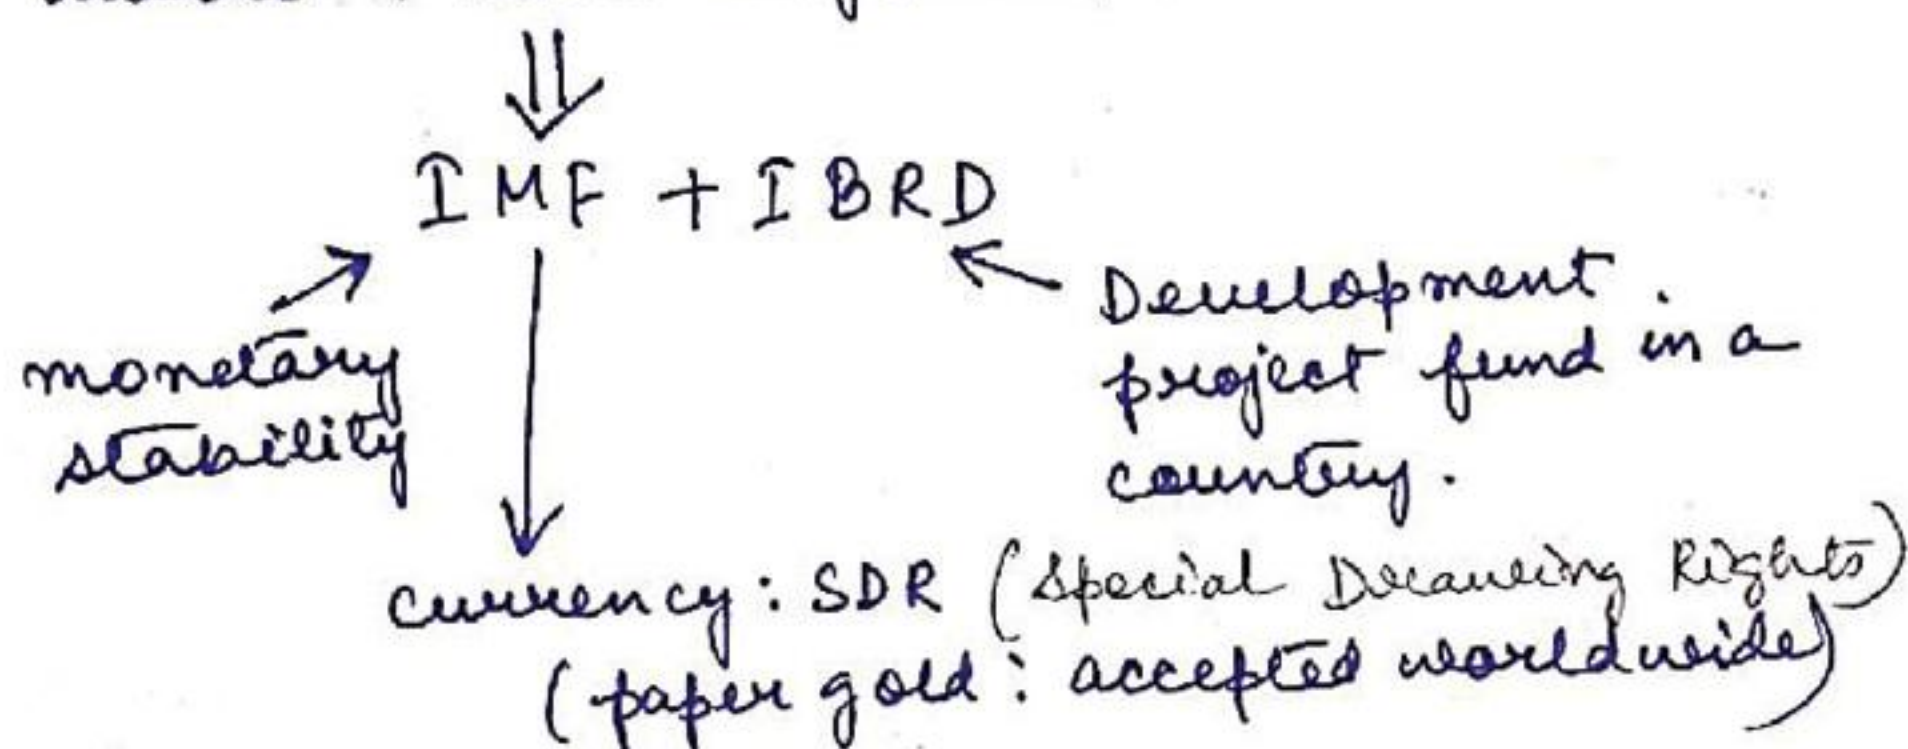 IMF + IBRD
monetary
stability
Development.
project fund in a
country.
currency: SDR (Special Drawing Rights)
(paper gold: accepted worldwide)